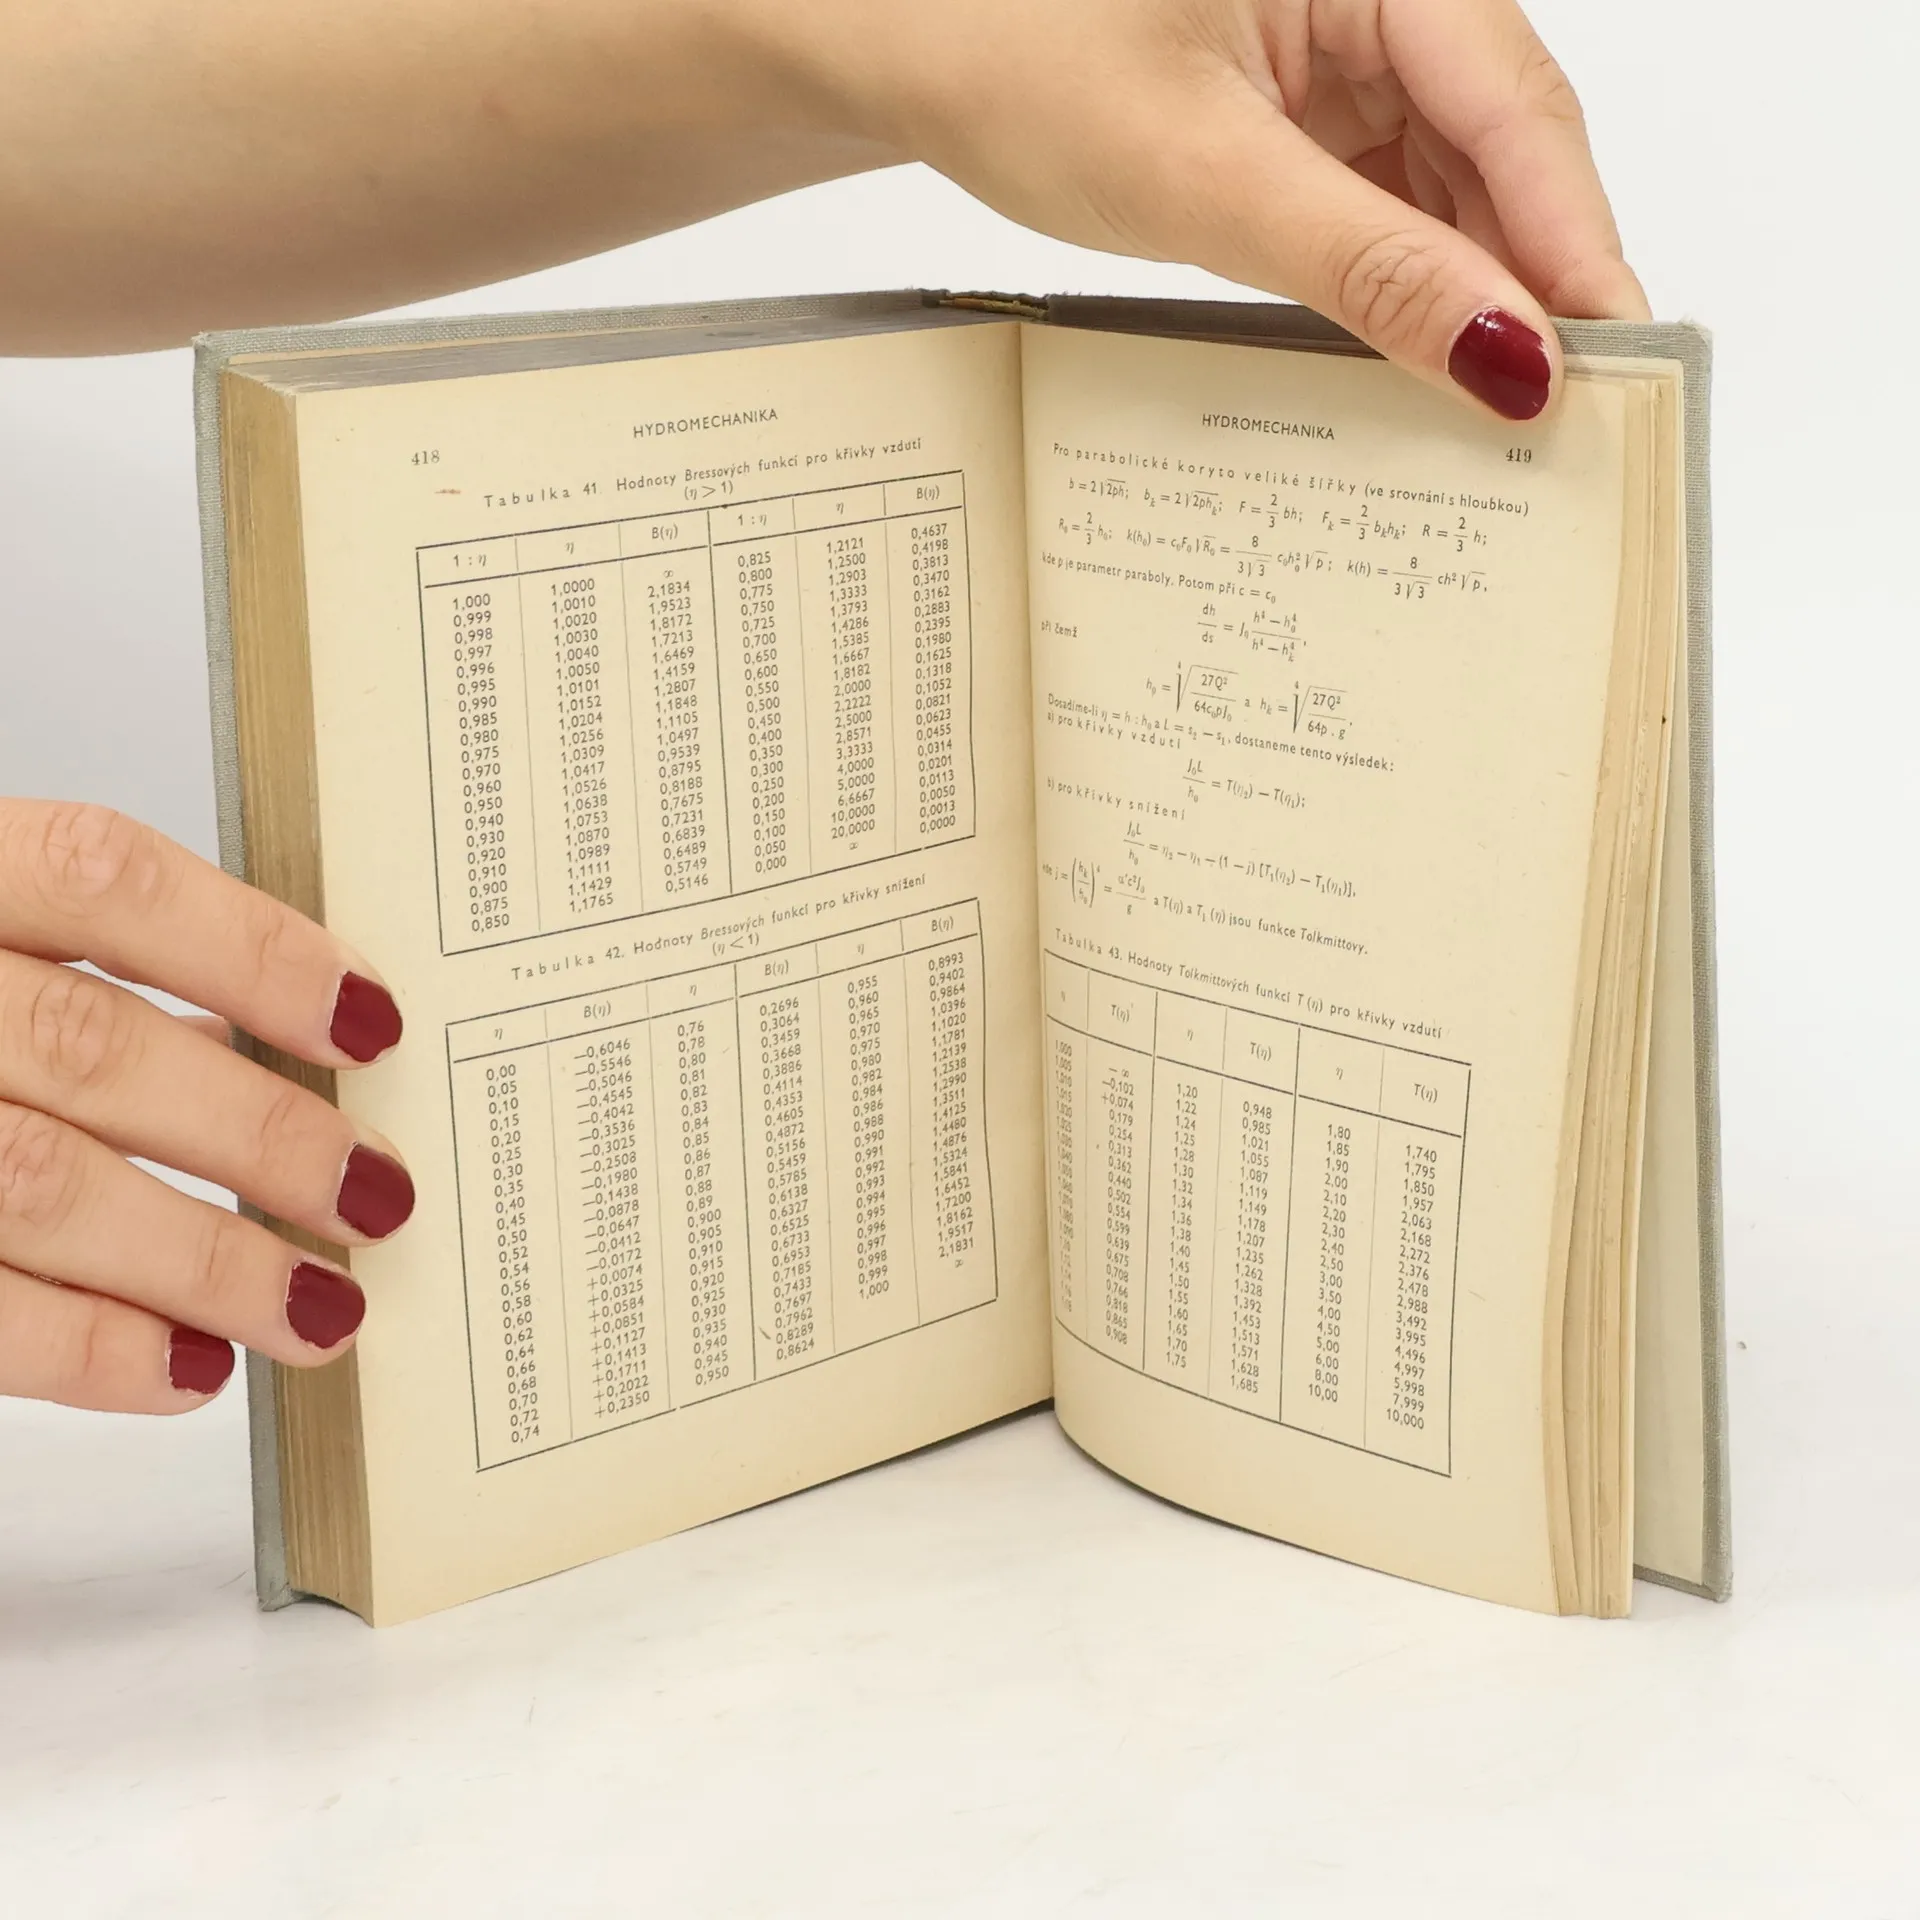 418
HYDROMECHANIKA
Tabulka 41. Hodnoty Bressových funkcí pro křivky vzdutí
(η > 1)
1 : η η B(η) 1 : η η B(η)
1,000 1,0000 ∞ 0,825 1,2121 0,4637
0,999 1,0010 2,1834 0,800 1,2500 0,4198
0,998 1,0020 1,9523 0,775 1,2903 0,3813
0,997 1,0030 1,8172 0,750 1,3333 0,3470
0,996 1,0040 1,7213 0,725 1,3793 0,3162
0,995 1,0050 1,6469 0,700 1,4286 0,2883
0,990 1,0101 1,4159 0,650 1,5385 0,2395
0,985 1,0152 1,2807 0,600 1,6667 0,1980
0,980 1,0204 1,1848 0,550 1,8182 0,1625
0,975 1,0256 1,1105 0,500 2,0000 0,1318
0,970 1,0309 1,0497 0,450 2,2222 0,1052
0,960 1,0417 0,9539 0,400 2,5000 0,0821
0,950 1,0526 0,8795 0,350 2,8571 0,0623
0,940 1,0638 0,8188 0,300 3,3333 0,0455
0,930 1,0753 0,7675 0,250 4,0000 0,0314
0,920 1,0870 0,7231 0,200 5,0000 0,0201
0,910 1,0989 0,6839 0,150 6,6667 0,0113
0,900 1,1111 0,6489 0,100 10,0000 0,0050
0,875 1,1429 0,5749 0,050 20,0000 0,0013
0,850 1,1765 0,5146 0,000 ∞ 0,0000
Tabulka 42. Hodnoty Bressových funkcí pro křivky snížení
(η < 1)
η B(η) η B(η) η B(η)
0,00 —0,6046 0,76 0,2696 0,955 0,8993
0,05 —0,5546 0,78 0,3064 0,960 0,9402
0,10 —0,5046 0,80 0,3459 0,965 0,9864
0,15 —0,4545 0,81 0,3668 0,970 1,0396
0,20 —0,4042 0,82 0,3886 0,975 1,1020
0,25 —0,3536 0,83 0,4114 0,980 1,1781
0,30 —0,3025 0,84 0,4353 0,982 1,2139
0,35 —0,2508 0,85 0,4605 0,984 1,2538
0,40 —0,1980 0,86 0,4872 0,986 1,2990
0,45 —0,1438 0,87 0,5156 0,988 1,3511
0,50 —0,0878 0,88 0,5459 0,990 1,4125
0,52 —0,0647 0,89 0,5785 0,991 1,4480
0,54 —0,0412 0,900 0,6138 0,992 1,4876
0,56 —0,0172 0,905 0,6327 0,993 1,5324
0,58 +0,0074 0,910 0,6525 0,994 1,5841
0,60 +0,0325 0,915 0,6733 0,995 1,6452
0,62 +0,0584 0,920 0,6953 0,996 1,7200
0,64 +0,0851 0,925 0,7185 0,997 1,8162
0,66 +0,1127 0,930 0,7433 0,998 1,9517
0,68 +0,1413 0,935 0,7697 0,999 2,1831
0,70 +0,1711 0,940 0,7962 1,000 ∞
0,72 +0,2022 0,945 0,8289
0,74 +0,2350 0,950 0,8624
HYDROMECHANIKA
419
Pro parabolické koryto veliké šířky (ve srovnání s hloubkou)
b = 2√2ph; bₖ = 2√2phₖ; F = 2/3 bh; Fₖ = 2/3 bₖhₖ; R = 2/3 h;
R₀ = 2/3 h₀; k(h₀) = c₀F₀√R₀ = 8/(3√3) c₀h₀²√p; k(h) = 8/(3√3) ch²√p,
kde p je parametr paraboly. Potom při c = c₀
dh/ds = J₀ (h⁴ — h₀⁴)/(h⁴ — hₖ⁴),
při čemž
h₀ = ⁴√(27Q²/64c₀pJ₀) a hₖ = ⁴√(27Q²/64p . g).
Dosadíme-li η = h : h₀ a L = s₂ — s₁, dostaneme tento výsledek:
a) pro křivky vzdutí
J₀L/h₀ = T(η₂) — T(η₁);
b) pro křivky snížení
J₀L/h₀ = η₂ — η₁ — (1 — j) [T₁(η₂) — T₁(η₁)],
kde j = (hₖ/h₀)⁴ = α'c²J₀/g a T(η) a T₁(η) jsou funkce Tolkmittovy.
Tabulka 43. Hodnoty Tolkmittových funkcí T (η) pro křivky vzdutí
η T(η) η T(η) η T(η)
1,000 — ∞ 1,20 0,948 1,80 1,740
1,005 —0,102 1,22 0,985 1,85 1,795
1,010 +0,074 1,24 1,021 1,90 1,850
1,015 0,179 1,25 1,055 2,00 1,957
1,020 0,254 1,28 1,087 2,10 2,063
1,025 0,313 1,30 1,119 2,20 2,168
1,030 0,362 1,32 1,149 2,30 2,272
1,040 0,440 1,34 1,178 2,40 2,376
1,050 0,502 1,36 1,207 2,50 2,478
1,060 0,554 1,38 1,235 3,00 2,988
1,070 0,599 1,40 1,262 3,50 3,492
1,080 0,639 1,45 1,328 4,00 3,995
1,090 0,675 1,50 1,392 4,50 4,496
1,10 0,708 1,55 1,453 5,00 4,997
1,12 0,766 1,60 1,513 6,00 5,998
1,14 0,818 1,65 1,571 8,00 7,999
1,16 0,865 1,70 1,628 10,00 10,000
1,18 0,908 1,75 1,685